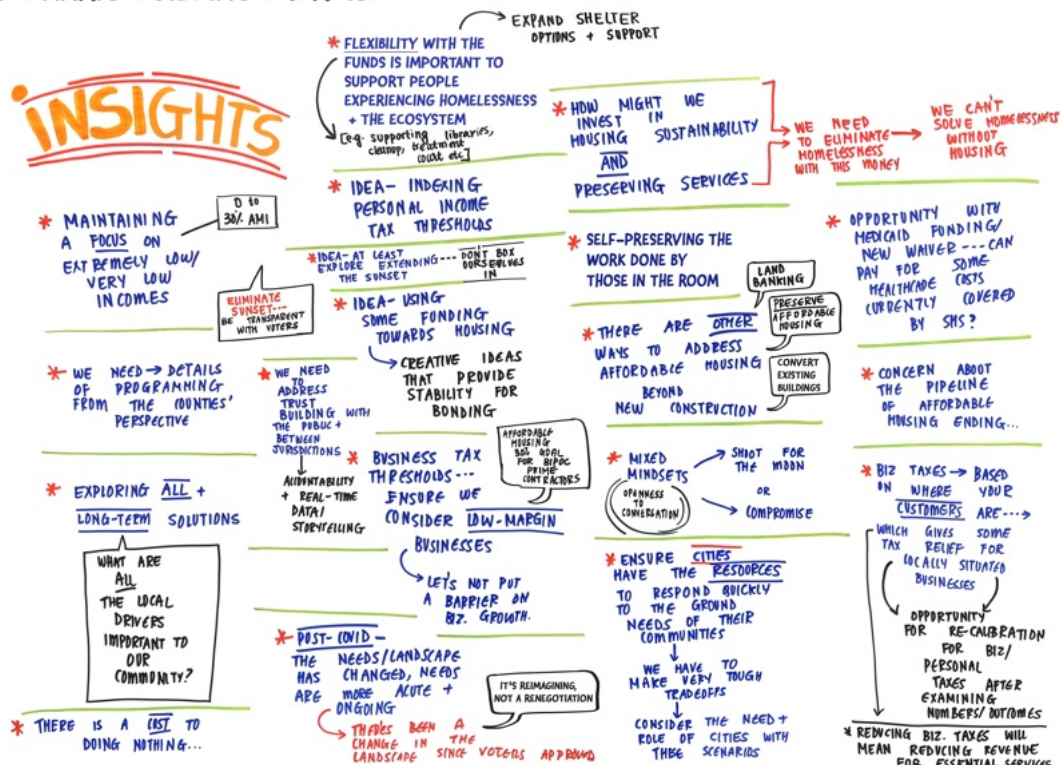 INSIGHTS
* MAINTAINING
A FOCUS ON
EXTREMELY LOW/
VERY LOW
INCOMES
0 to
30% AMI
ELIMINATE
SUNSET---
BE TRANSPARENT
WITH VOTERS
* WE NEED → DETAILS
OF PROGRAMMING
FROM THE COUNTIES'
PERSPECTIVE
* EXPLORING ALL +
LONG-TERM SOLUTIONS
WHAT ARE
ALL
THE LOCAL
DRIVERS
IMPORTANT TO
OUR
COMMUNITY?
* THERE IS A COST TO
DOING NOTHING...
* FLEXIBILITY WITH THE
FUNDS IS IMPORTANT TO
SUPPORT PEOPLE
EXPERIENCING HOMELESSNESS
+ THE ECOSYSTEM
EXPAND SHELTER
OPTIONS + SUPPORT
[e.g. supporting libraries,
cleanup, treatment
court etc]
* IDEA- INDEXING
PERSONAL INCOME
TAX THRESHOLDS
* IDEA- AT LEAST
EXPLORE EXTENDING---
THE SUNSET
DON'T BOX
OURSELVES
IN
* IDEA- USING
SOME FUNDING
TOWARDS HOUSING
CREATIVE IDEAS
THAT PROVIDE
STABILITY FOR
BONDING
* WE NEED
TO
ADDRESS
TRUST
BUILDING WITH
THE PUBLIC +
BETWEEN
JURISDICTIONS
ACCOUNTABILITY
+ REAL-TIME
DATA/
STORYTELLING
* BUSINESS TAX
THRESHOLDS---
ENSURE WE
CONSIDER LOW-MARGIN
BUSINESSES
AFFORDABLE
HOUSING
30% GOAL
FOR BIPOC
PRIME
CONTRACTORS
LET'S NOT PUT
A BARRIER ON
BIZ. GROWTH.
* POST-COVID -
THE NEEDS/LANDSCAPE
HAS CHANGED, NEEDS
ARE MORE ACUTE +
ONGOING
IT'S REIMAGINING,
NOT A RENEGOTIATION
THERE'S BEEN A
CHANGE IN THE
LANDSCAPE SINCE VOTERS APPROVED
* HOW MIGHT WE
INVEST IN
HOUSING SUSTAINABILITY
AND
PRESERVING SERVICES
WE NEED
TO ELIMINATE
HOMELESSNESS
WITH THIS MONEY
WE CAN'T
SOLVE HOMELESSNESS
WITHOUT
HOUSING
* SELF-PRESERVING THE
WORK DONE BY
THOSE IN THE ROOM
* THERE ARE OTHER
WAYS TO ADDRESS
AFFORDABLE HOUSING
BEYOND
NEW CONSTRUCTION
LAND
BANKING
PRESERVE
AFFORDABLE
HOUSING
CONVERT
EXISTING
BUILDINGS
* MIXED
MINDSETS
OPENNESS
TO
CONVERSATION
SHOOT FOR
THE MOON
OR
COMPROMISE
* ENSURE CITIES
HAVE THE RESOURCES
TO RESPOND QUICKLY
TO THE GROUND
NEEDS OF THEIR
COMMUNITIES
WE HAVE TO
MAKE VERY TOUGH
TRADEOFFS
CONSIDER THE NEED +
ROLE OF CITIES WITH
THESE SCENARIOS
* OPPORTUNITY WITH
MEDICAID FUNDING/
NEW WAIVER --- CAN
PAY FOR SOME
HEALTHCARE COSTS
CURRENTLY COVERED
BY SHS?
* CONCERN ABOUT
THE PIPELINE
OF AFFORDABLE
HOUSING ENDING...
* BIZ TAXES → BASED
ON WHERE YOUR
CUSTOMERS ARE--->
WHICH GIVES SOME
TAX RELIEF FOR
LOCALLY SITUATED
BUSINESSES
OPPORTUNITY
FOR RE-CALIBRATION
FOR BIZ/
PERSONAL
TAXES AFTER
EXAMINING
NUMBERS/OUTCOMES
* REDUCING BIZ. TAXES WILL
MEAN REDUCING REVENUE
FOR ESSENTIAL SERVICES